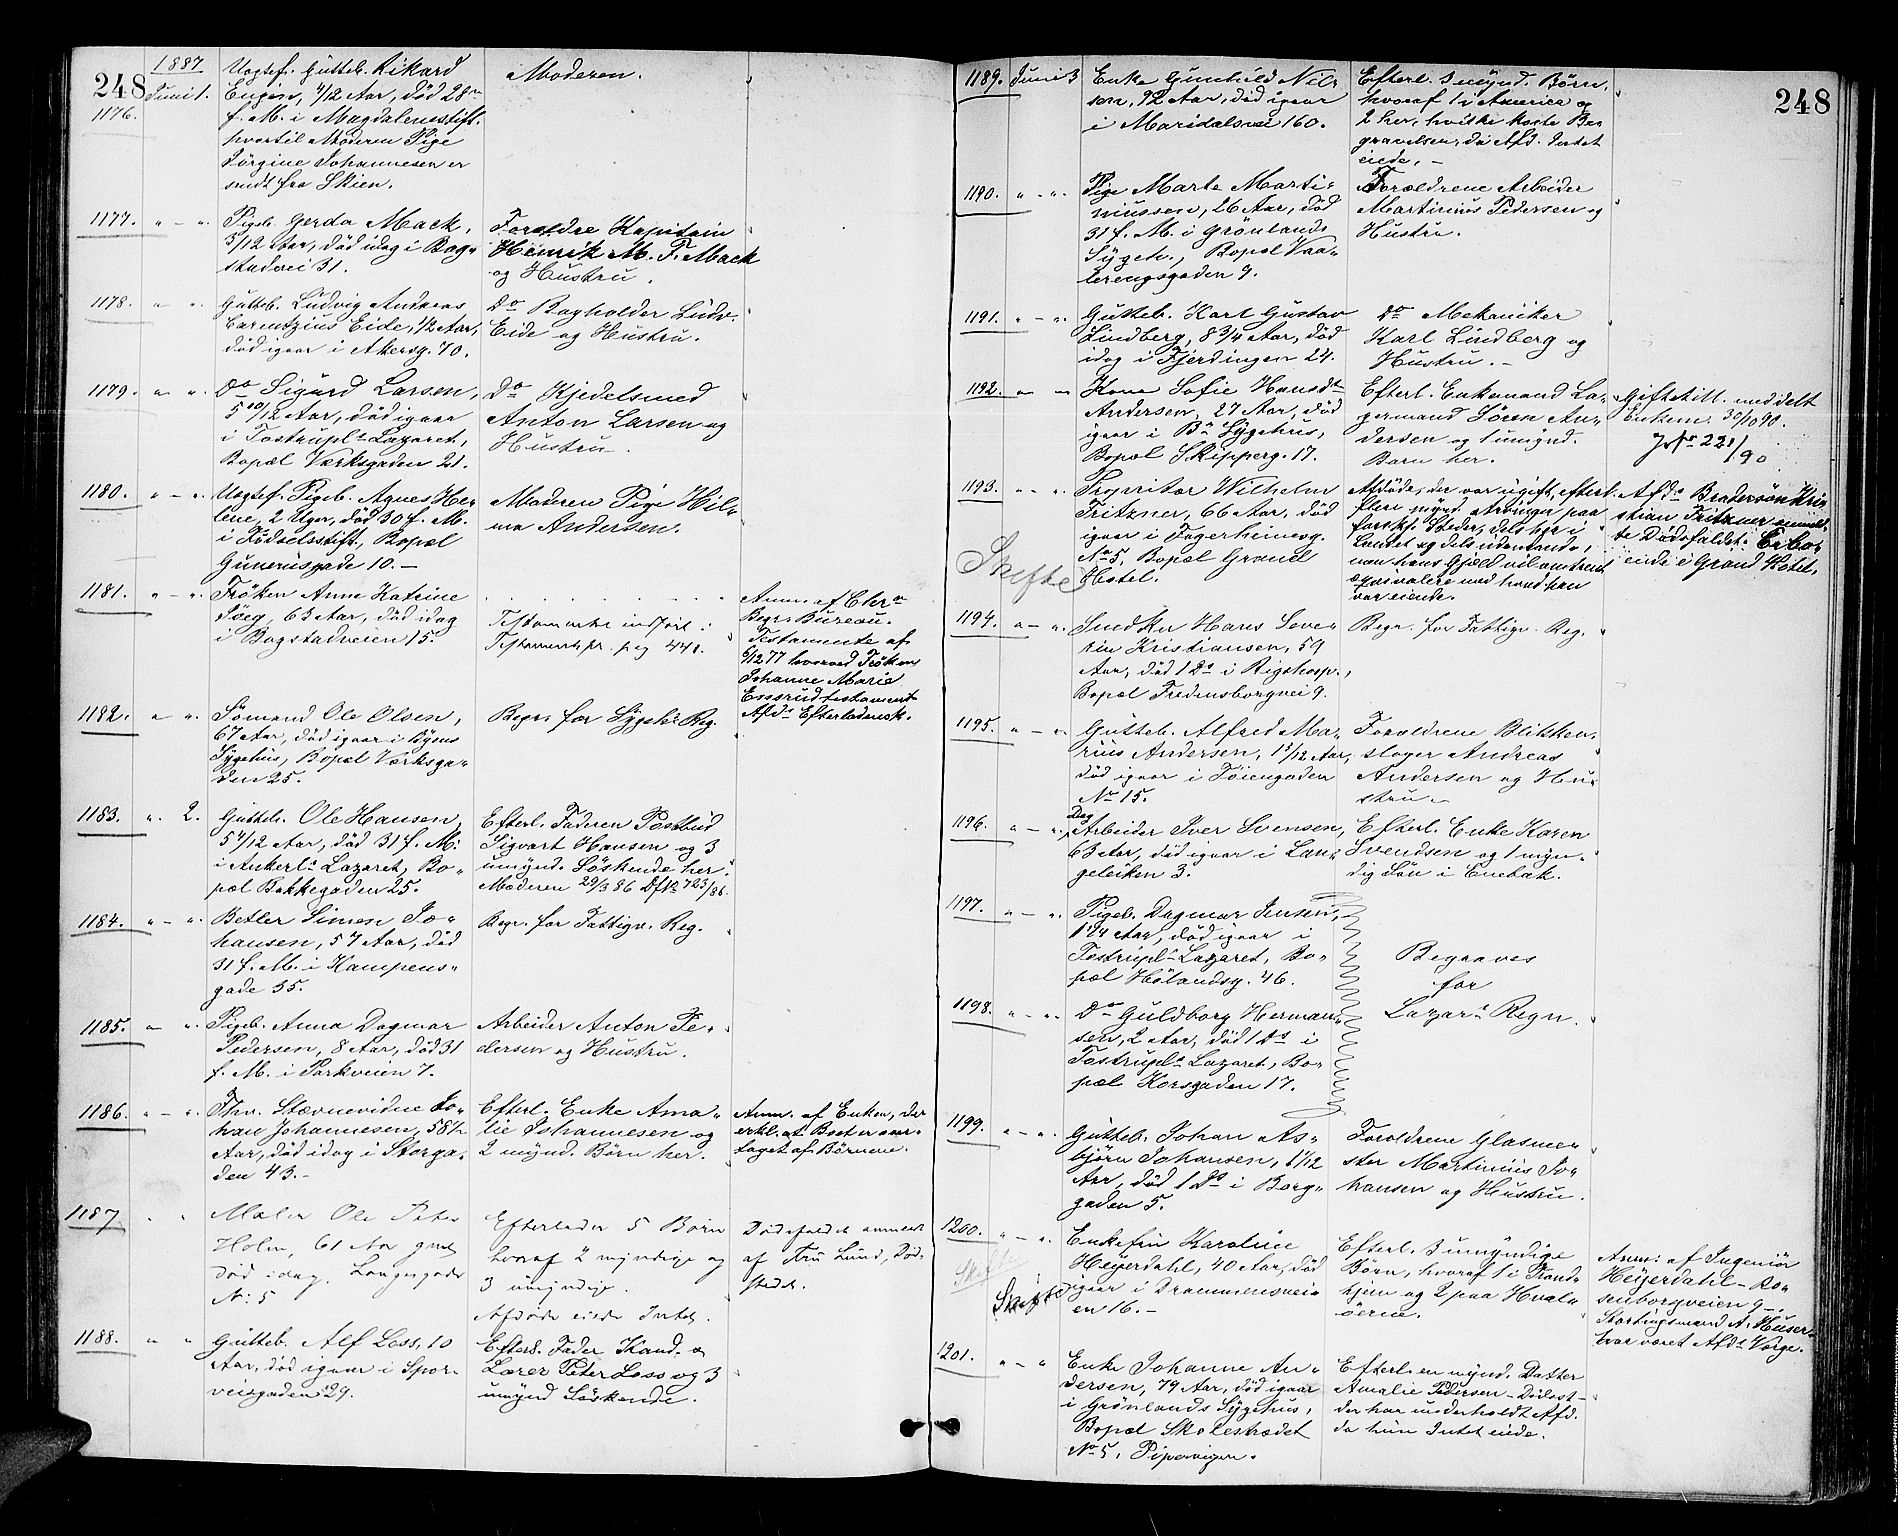 248
1887
Juni 1.
1176.
Uegtef. Gutteb. Rikard
Eugen, 4/12 Aar, død 28de
f. M. i Magdalenestift.
hvortil Moderen Pige
Jørgine Johannesen er
sendt fra Skien.
Moderen.
1177. " - ".
Pigeb. Gerda Mack,
5/12 Aar, død idag i Bog-
stadvei 31.
Forældre Kaptein
Henrik M. F. Mack
og Hustru.
1178. " - ".
Gutteb. Ludvig Andreas
Carentzius Eide, 1/2 Aar,
død igaar i Akersg. 70.
Do Bogholder Ludv.
Eide og Hustru.
1179. " - ".
Do Sigurd Larsen,
5 10/12 Aar, død igaar
i Tostrupl.s Lazaret,
Bopæl Værksgaden 21.
Do Kjedelsmed
Anton Larsen og
Hustru.
1180. " - ".
Uegtef. Pigeb. Agnes He-
lene, 2 Uger, død 30 f. M.
i Fødselsstift., Bopæl
Gunerusgade 10. -
Moderen Pige Hil-
ma Andersen.
1181. " - ".
Frøken Anne Katrine
Søeg, 63 Aar, død idag
i Bogstadveien 15.
Testamente indført i
Testamentspr. pag 441.
Anm. af Chra
Begr. Bureau.
Testamente af
6/12 77 hvorved Frøken
Johanne Marie
Ensrud testament.
Afds Efterladensk.
1182. " - ".
Sømand Ole Olsen,
67 Aar, død igaar i Byens
Sygehus, Bopæl Værksga-
den 25.
Begr. for Sygehs Reg.
1183. " 2.
Gutteb. Ole Hansen,
5 4/12 Aar, død 31 f. M.
i Ankerl.s Lazaret, Bo-
pæl Bakkegaden 25.
Efterl. Faderen Postbud
Sigvart Hansen og 3
umynd. Søskende her.
Moderen 29/3 86 Dfp 723/86.
1184. " - ".
Betler Simen Jo-
hansen, 57 Aar, død
31 f. M. i Kampens-
gade 35.
Begr. for Fattigv. Reg.
1185. " - ".
Pigeb. Anna Dagmar
Pedersen, 8 Aar, død 31
f. M. i Parkveien 7.
Arbeider Anton Pe-
dersen og Hustru.
1186. " - ".
Fhv. Stævnevidne Jo-
han Johannesen, 58 1/2
Aar, død idag i Storga-
den 43. -
Efterl. Enke Ama-
lie Johannesen og
2 mynd. Børn her.
Anm. af Enken, der
erkl. at Boet er over-
taget af Børnene.
1187
Maler Ole Peter
Holm, 61 Aar gml
død idag, Langesgade
No 5
Efterlader 5 Børn
hvoraf 2 myndige og
3 umyndige.
Afdøde eiede Intet.
Dødsfaldet anmeldt
af Fru Lund, Død-
stedet.
1188. " "
Gutteb. Alf Loss, 10
Aar, død igaar i Spor-
veisgaden 29.
Efterl. Fader Kand. og
Lærer Peter Loss og 3
umynd Søskende.
248
1189. Juni 3
Enke Gunhild Nil-
sen, 92 Aar, død igaar
i Maridalsvei 160.
Efterl. 3 mynd. Børn,
hvoraf 1 i America og
2 her, hvilke koste Be-
gravelsen, da Afd. Intet
eiede. -
1190. " - ".
Pige Marte Marti-
niussen, 26 Aar, død
31 f. M. i Grønlands
Sygeh., Bopæl Vaa-
lerengsgaden 7.
Forældrene Arbeider
Martinius Pedersen og
Hustru.
1191. " - ".
Gutteb. Karl Gustav
Lindberg, 8 3/4 Aar, død
idag i Fjerdingen 24.
Do Mekaniker
Karl Lindberg og
Hustru. -
1192. " -
Kone Sofie Hansdt
Andersen, 27 Aar, død
igaar i Bs Sygehus,
Bopæl Skipperg. 17.
Efterl. Enkemand La-
germand Søren An-
dersen og 1 umynd.
Barn her.
Giftetill. meddelt
Enkem. 30/10 90.
Jno 221/90
1193. " - ".
Skifte
Proprietær Wilhelm
Fritzner, 66 Aar, død
igaar i Fagerheimsg.
No 5, Bopæl Grand
Hotel.
Afdøde, der var ugift, efterl.
flere mynd. arvinger paa
forskj. Steder, dels her i
Landet og dels udenlands,
men hans Gjæld vil omtrent
æqvivalere med hvad han
var eiende.
Afds Brodersøn Kri-
stian Fritzner anmeld-
te Dødsfaldet. Er bo-
ende i Grand Hotel,
1194. " - ".
Snedker Hans Seve-
rin Kristiansen, 59
Aar, død 1 Ds i Rigshosp.,
Bopæl Fredensborgvei 9.
Begr. for Fattigv. Reg.
1195. " - ".
Gutteb. Alfred Ma-
rius Andersen, 1 3/12 Aar,
død igaar i Tøiengaden
No 15.
Forældrene Blikken-
slager Andreas
Andersen og Hu-
stru. -
1196. " - ".
Dag
Arbeider Iver Svensen,
63 Aar, død igaar i Lan-
geleiken 3.
Efterl. Enke Karen
Svendsen og 1 myn-
dig Søn i Enebak.
1197. " - ".
Pigeb. Dagmar Jensen,
1 1/24 Aar, død igaar i
Tostrupl.s Lazaret, Bo-
pæl Hølandsg. 46.
Begraves
for
Lazar.s Regn.
1198. " - ".
Do Guldborg Herman-
sen, 2 Aar, død 1 Ds i
Tostrupl.s Lazaret, Bo-
pæl Korsgaden 17.
1199. " - ".
Gutteb. Johan As-
bjørn Johansen, 1 1/12
Aar, død 1 Ds i Borg-
gaden 5.
Forældrene Glasme-
ster Martinius Jo-
hansen og Hustru.
1200. " - ".
Skifte
Skifte
Enkefru Karoline
Heyerdahl, 40 Aar, død
igaar i Drammensvei-
en 16. -
Efterl. 3 umyndige
Børn, hvoraf 1 i Trond-
hjem og 2 paa Hval-
øerne.
Anm. af Ingeniør
Heyerdahl - Ro-
senborgveien 9 -.
Stortingsmand A. Huser-
har været Afds Værge.
1201. " - "
Enke Johanne An-
dersen, 79 Aar, død igaar
i Grønlands Sygehus,
Bopæl Skolestrædet
No 5, Pipervigen.
Efterl. en mynd. Datter
Amalie Pedersen - Dølest-
der har underholdt Afd.
da hun Intet eiede.